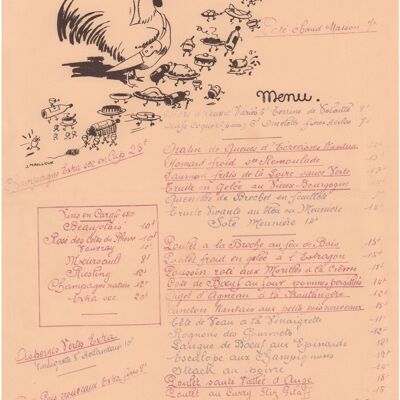 Pâté Chaud Maison 7f
Menu.
Hors d'œuvre Variés 6f Terrine de Volaille 8f
J. MAILLOUX
Champagne Extra sec en Cup 25f
Gratin de Queues d'Ecrevisses Nantua
Homard froid Sce Remoulade
Saumon frais de la Loire sauce Verte 13f
Truite en Gelée au Vieux Bourgogne
Quenelles de Brochet en feuilleté
Truite Vivante au bleu ou Meunière
Sole Meunière 14f
Vins en Carafe
Beaujolais - 10f
Rosé des côtes du Rhône - 10f
Vouvray - 10f
Meursault 8f
Riesling 12f
Champagne nature 12f
Extra sec 20f
Poulet à la Broche au feu de Bois 15f
Poulet froid en gelée à l'Estragon 15f
Poussin roti aux Morilles à la Crème
Côte de Bœuf au four pommes persillées
Gigot d'Agneau à la Boulangère
Caneton Nantais aux petits pois nouveaux
Tête de Veau à la Vinaigrette
Rognons des Gourmets
Langue de Bœuf aux Epinards
Escalope aux Champignons
Steack au poivre
Poulet sauté Vallée d'Auge
Poulet au Curry Riz Pilaf
Asperges Vertes Extra
Vinaigrette 8f Hollandaise 10f
Pois nouveaux Extra fins 8f